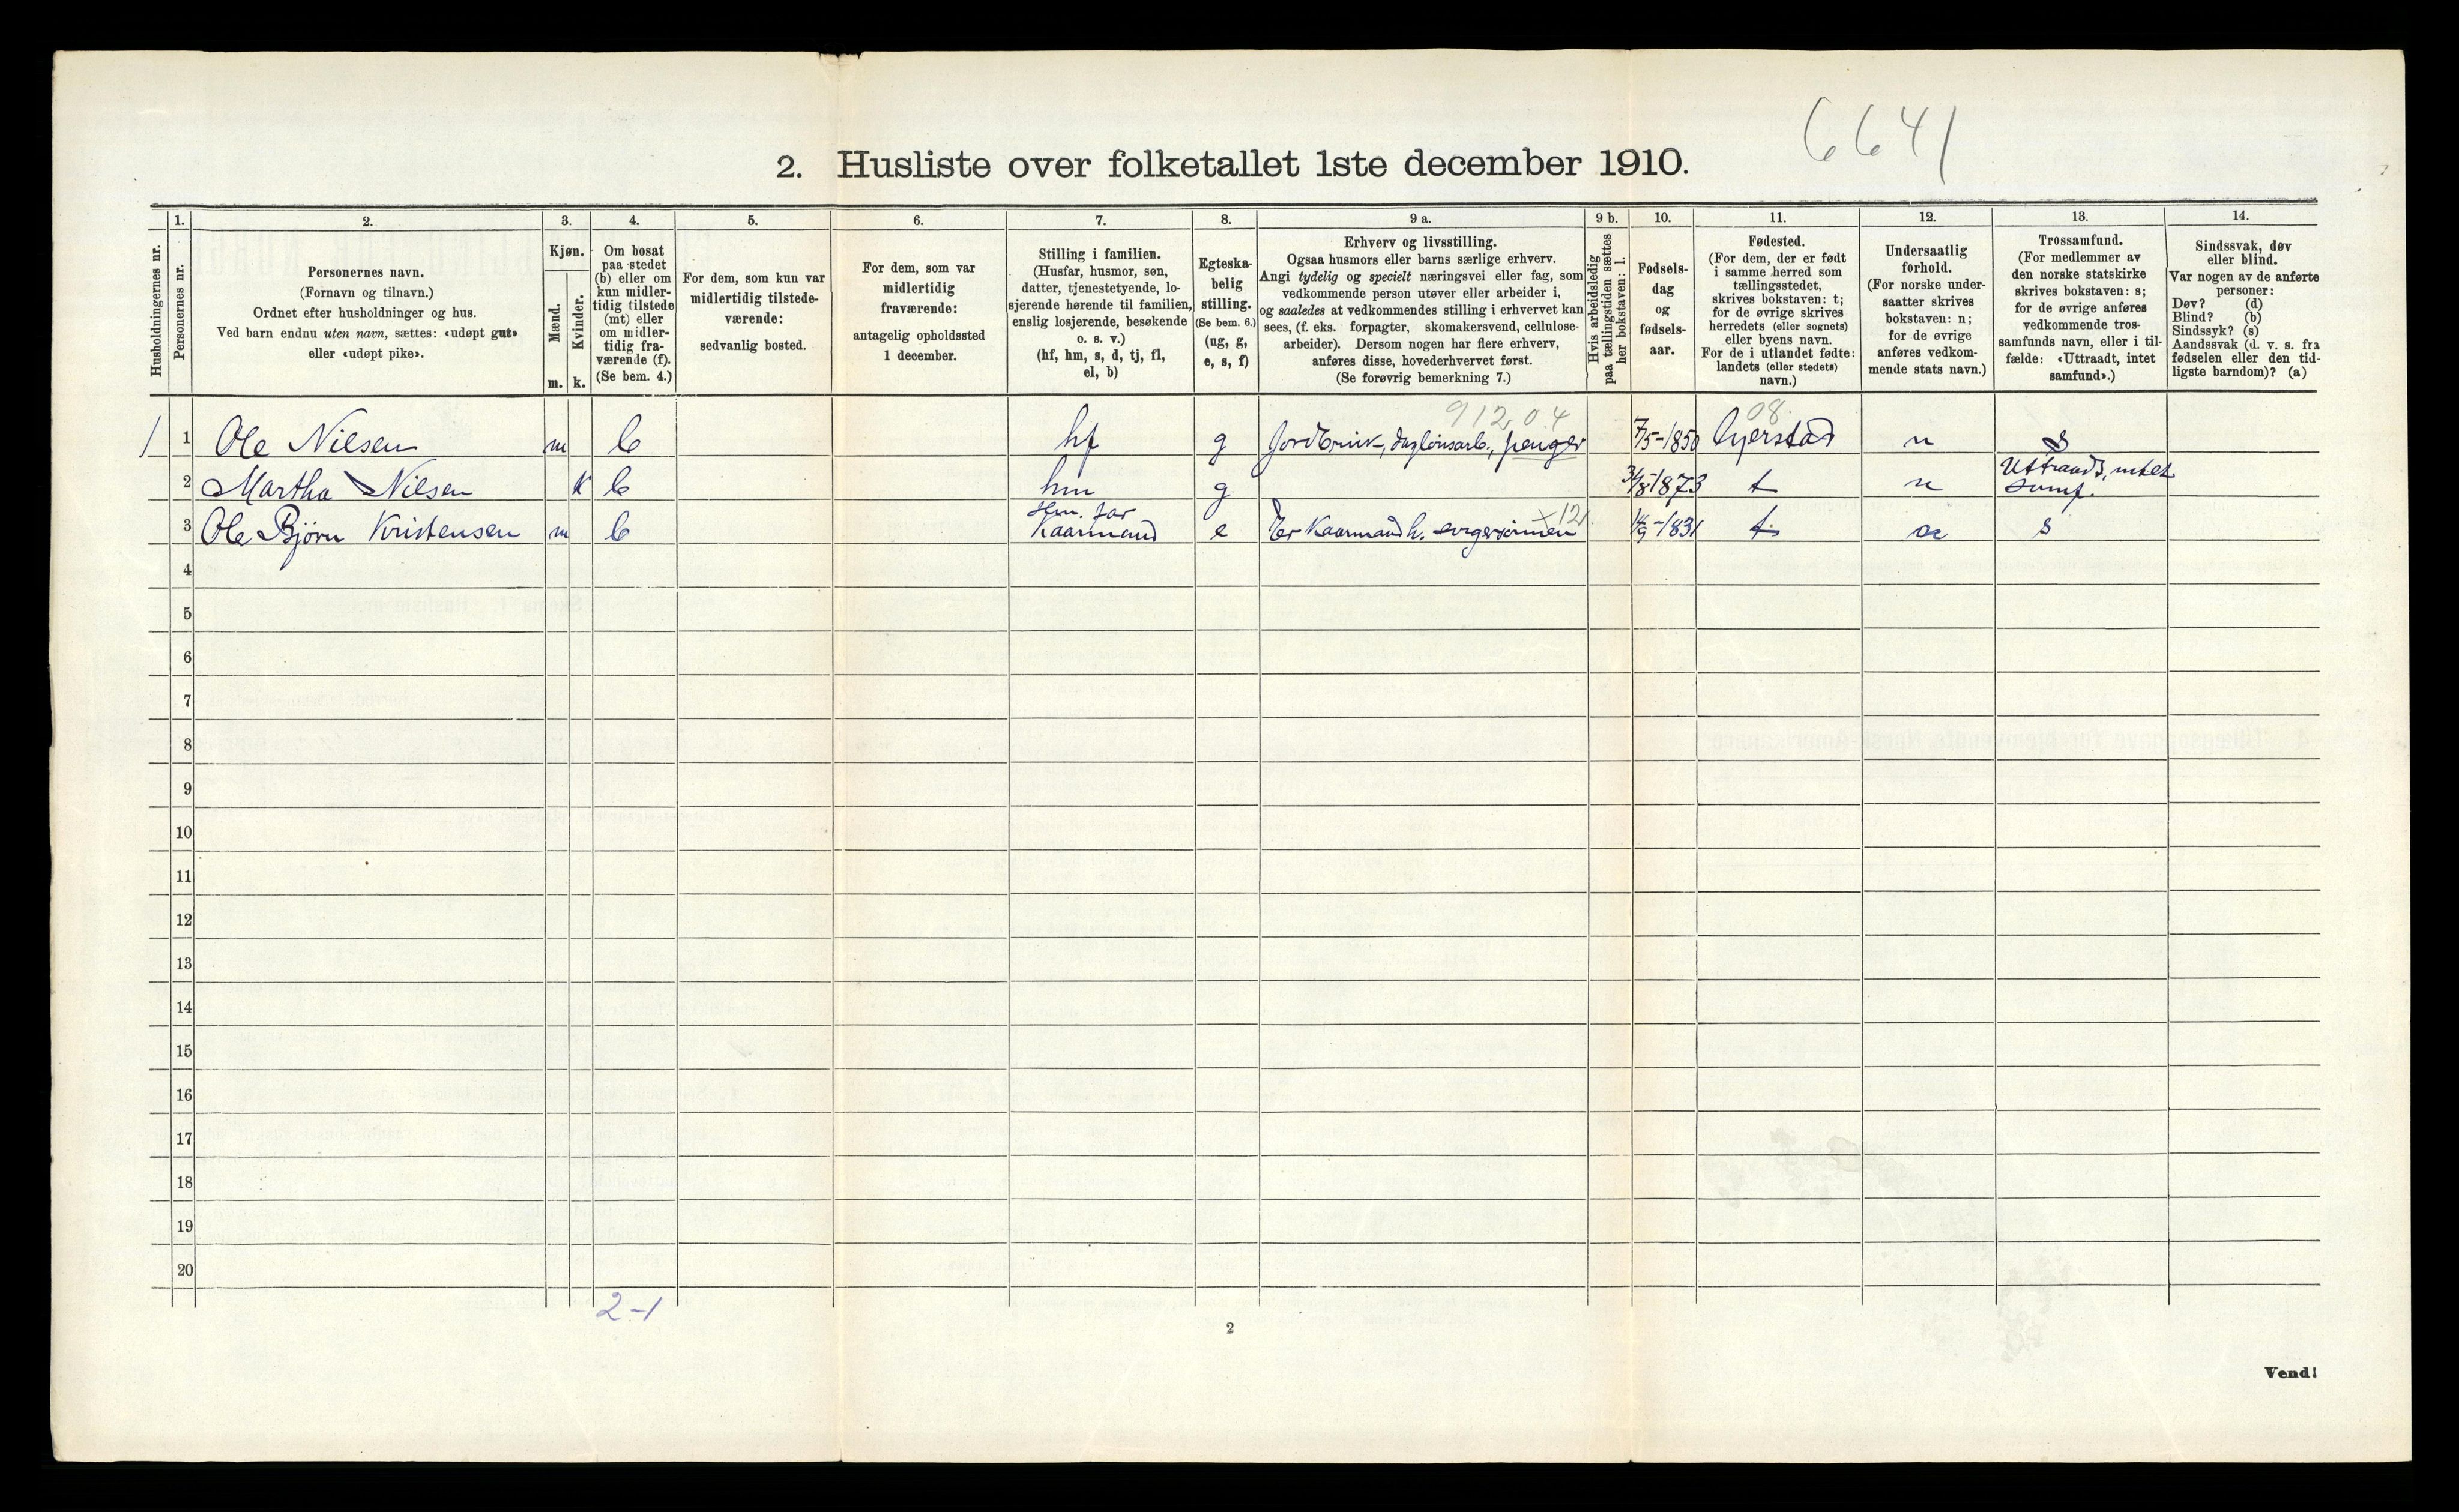 6641
2. Husliste over folketallet 1ste december 1910.
Husholdningernes nr.
1.
Personernes nr.
2.
Personernes navn.
(Fornavn og tilnavn.)
Ordnet efter husholdninger og hus.
Ved barn endnu uten navn, sættes: «udøpt gut»
eller «udøpt pike».
3.
Kjøn.
Mænd.
Kvinder.
m. k.
4.
Om bosat
paa stedet
(b) eller om
kun midler-
tidig tilstede
(mt) eller
om midler-
tidig fra-
værende (f).
(Se bem. 4.)
5.
For dem, som kun var
midlertidig tilstede-
værende:
sedvanlig bosted.
6.
For dem, som var
midlertidig
fraværende:
antagelig opholdssted
1 december.
7.
Stilling i familien.
(Husfar, husmor, søn,
datter, tjenestetyende, lo-
sjerende hørende til familien,
enslig losjerende, besøkende
o. s. v.)
(hf, hm, s, d, tj, fl,
el, b)
8.
Egteska-
belig
stilling.
(Se bem. 6.)
(ug, g,
e, s, f)
9 a.
Erhverv og livsstilling.
Ogsaa husmors eller barns særlige erhverv.
Angi tydelig og specielt næringsvei eller fag, som
vedkommende person utøver eller arbeider i,
og saaledes at vedkommendes stilling i erhvervet kan
sees, (f. eks. forpagter, skomakersvend, cellulose-
arbeider). Dersom nogen har flere erhverv,
anføres disse, hovederhvervet først.
(Se forøvrig bemerkning 7.)
9 b.
Hvis arbeidsledig
paa tællingstiden sættes
her bokstaven: l.
10.
Fødsels-
dag
og
fødsels-
aar.
11.
Fødested.
(For dem, der er født
i samme herred som
tællingsstedet,
skrives bokstaven: t;
for de øvrige skrives
herredets (eller sognets)
eller byens navn.
For de i utlandet fødte:
landets (eller stedets)
navn.)
12.
Undersaatlig
forhold.
(For norske under-
saatter skrives
bokstaven: n;
for de øvrige
anføres vedkom-
mende stats navn.)
13.
Trossamfund.
(For medlemmer av
den norske statskirke
skrives bokstaven: s;
for de øvrige anføres
vedkommende tros-
samfunds navn, eller i til-
fælde: «Uttraadt, intet
samfund».)
14.
Sindssvak, døv
eller blind.
Var nogen av de anførte
personer:
Døv? (d)
Blind? (b)
Sindssyk? (s)
Aandssvak (d. v. s. fra
fødselen eller den tid-
ligste barndom)? (a)
91204 08
1 1 Ole Nilsen m b hf g Jordbruk-, daglönsarb., penger 7/5-1850 Gjerstad n s
2 Martha Nilsen k b hm g 1873 t n Uttraadt, intet
samf.
3 Ole Bjørn Kristensen m b Hm. far
Kaarmand e Er Kaarmand h. svigersönnen x 12 14/9-1831 t n s
4
5
6
7
8
9
10
11
12
13
14
15
16
17
18
19
20
2-1
2
Vend!